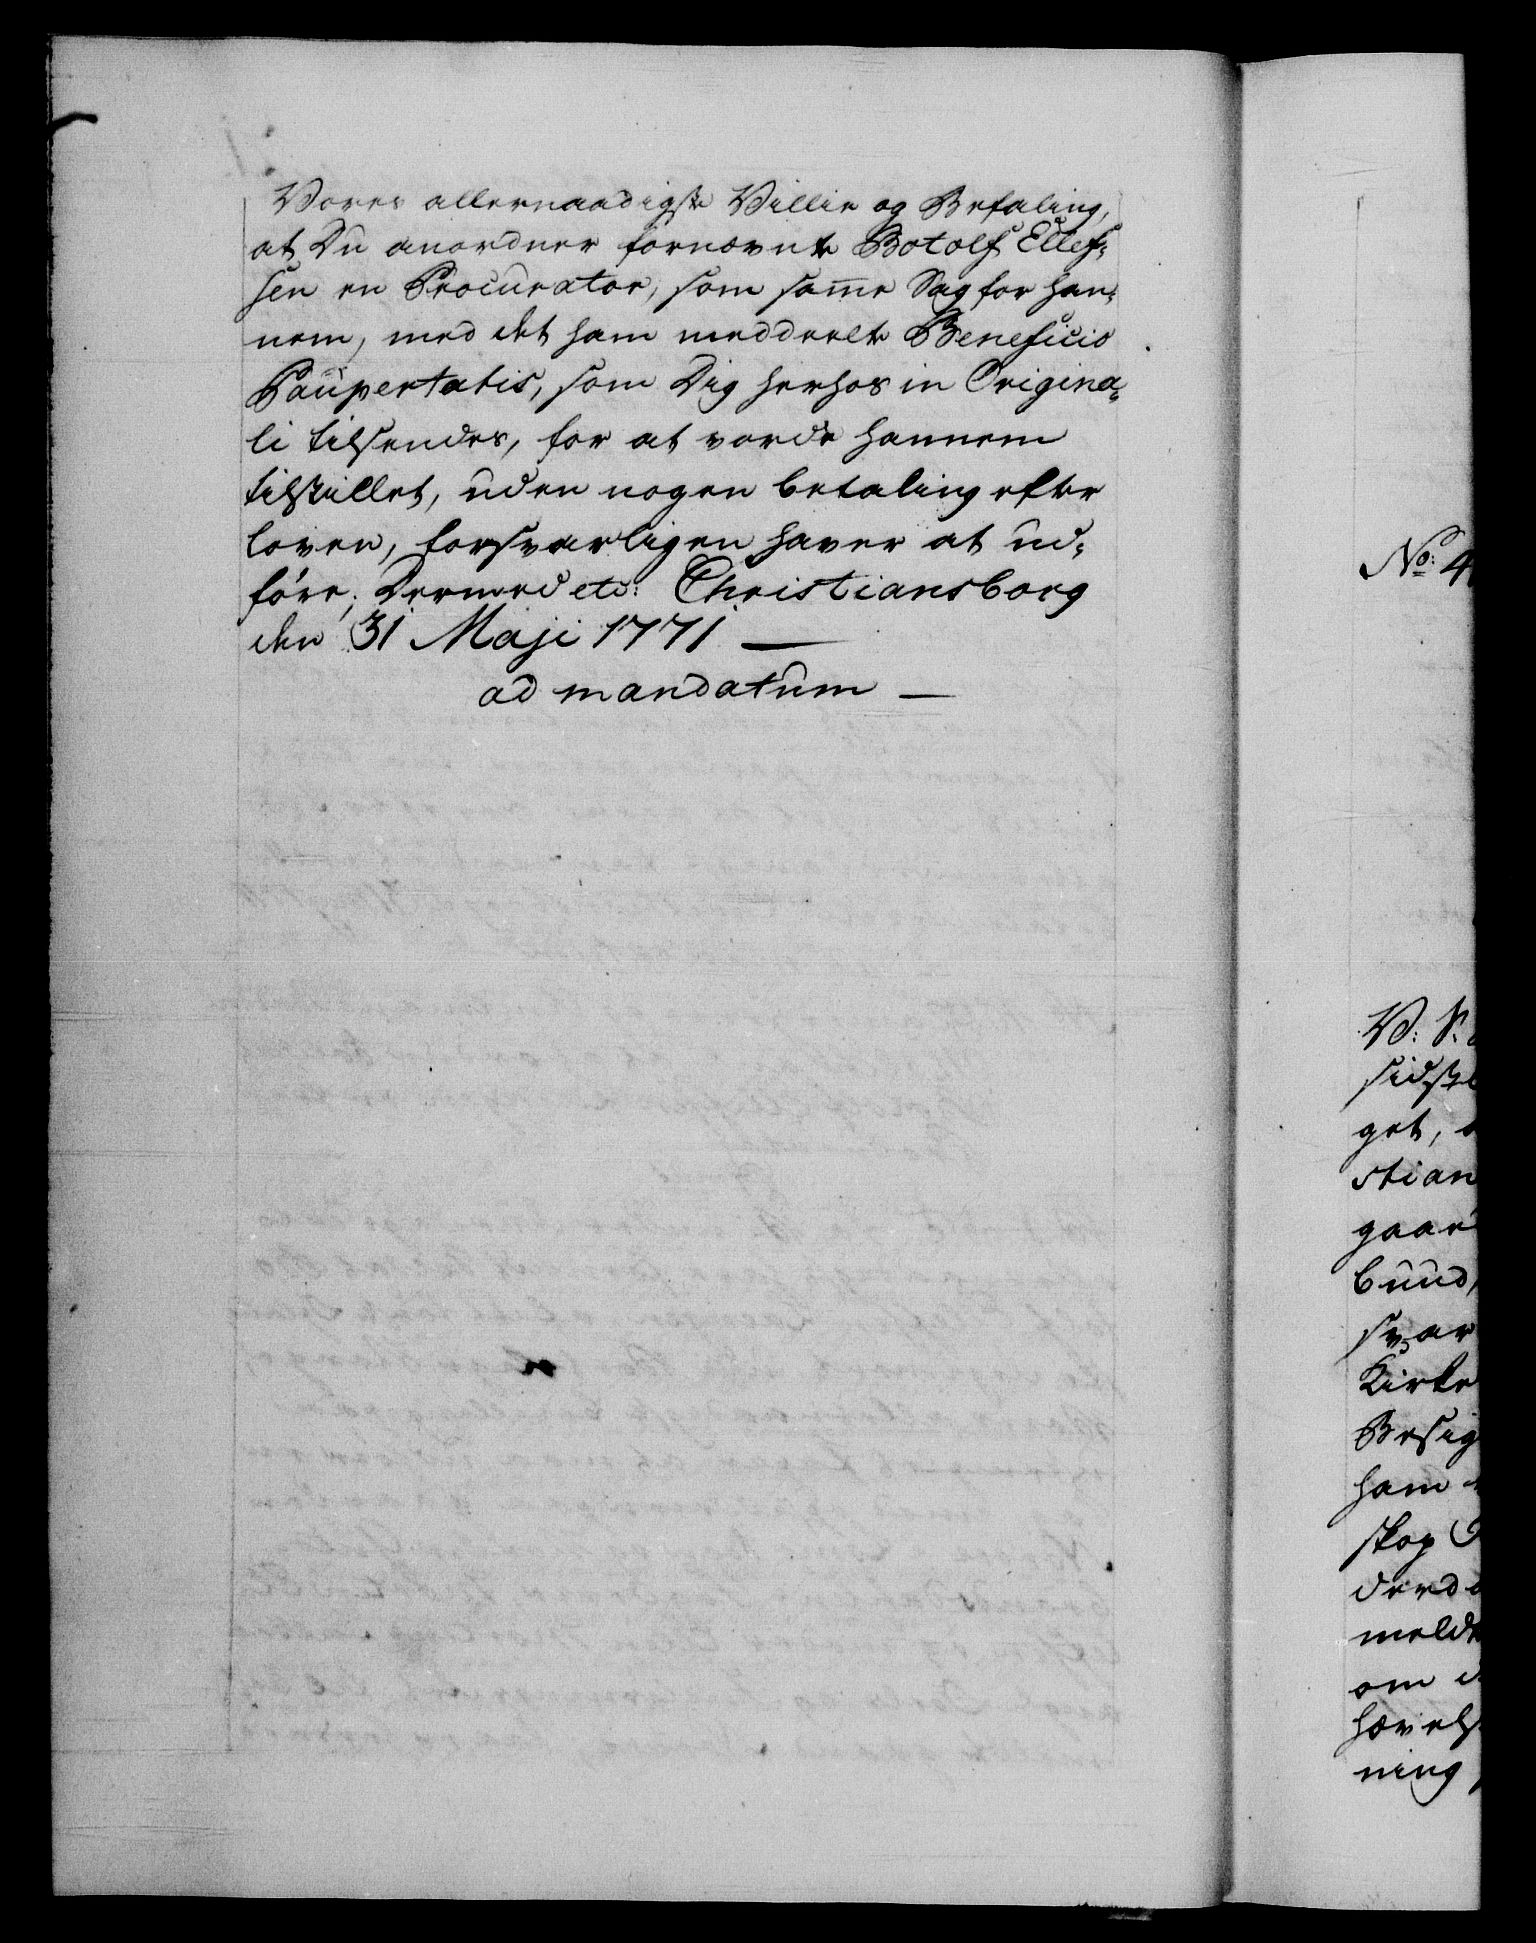 Vores allernaadigste Villie og Befaling,
at Du anordner fornævnte Botolf Ellef-
sen en Procurator, som samme Sag for han-
nem, med det ham meddeelte Beneficio
Paupertatis, som Dig herhos in Origina-
li tilsendes, for at vorde hannem
tilstillet, uden nogen betaling efter
loven, forsvarligen haver at ud-
føre; Dermed etc: Christiansborg
den 31 Maji 1771 —
ad mandatum —
No: 4
V: S:
sidst
get,
stian
gaar
bund,
svar
Kirke
Besig
ham
skop
meld
om
hævels
ning